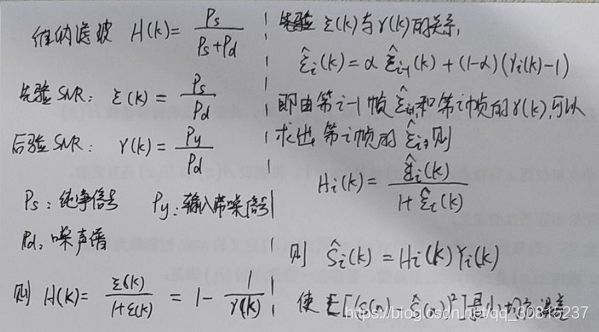 维纳滤波 H(k) = Ps / (Ps+Pd)
先验SNR: ξ(k) = Ps / Pd
后验SNR: γ(k) = Py / Pd
Ps: 纯净信号 Py: 输入带噪信号
Pd: 噪声谱
则 H(k) = ξ(k) / (1+ξ(k)) = 1 - 1 / γ(k)
先验 ξ(k) 与 γ(k) 的关系,
ξ̂i(k) = α ξ̂i-1(k) + (1-α)(γi(k)-1)
即由第i-1帧 ξ̂i-1 和第i帧的 γ(k), 可以
求出第i帧的 ξ̂i, 则
Hi(k) = ξ̂i(k) / (1+ξ̂i(k))
则 Ŝi(k) = Hi(k) Yi(k)
使 E[(S(n) - Ŝ(n))²] 最小
https://blog.csdn.net/qq_60815237